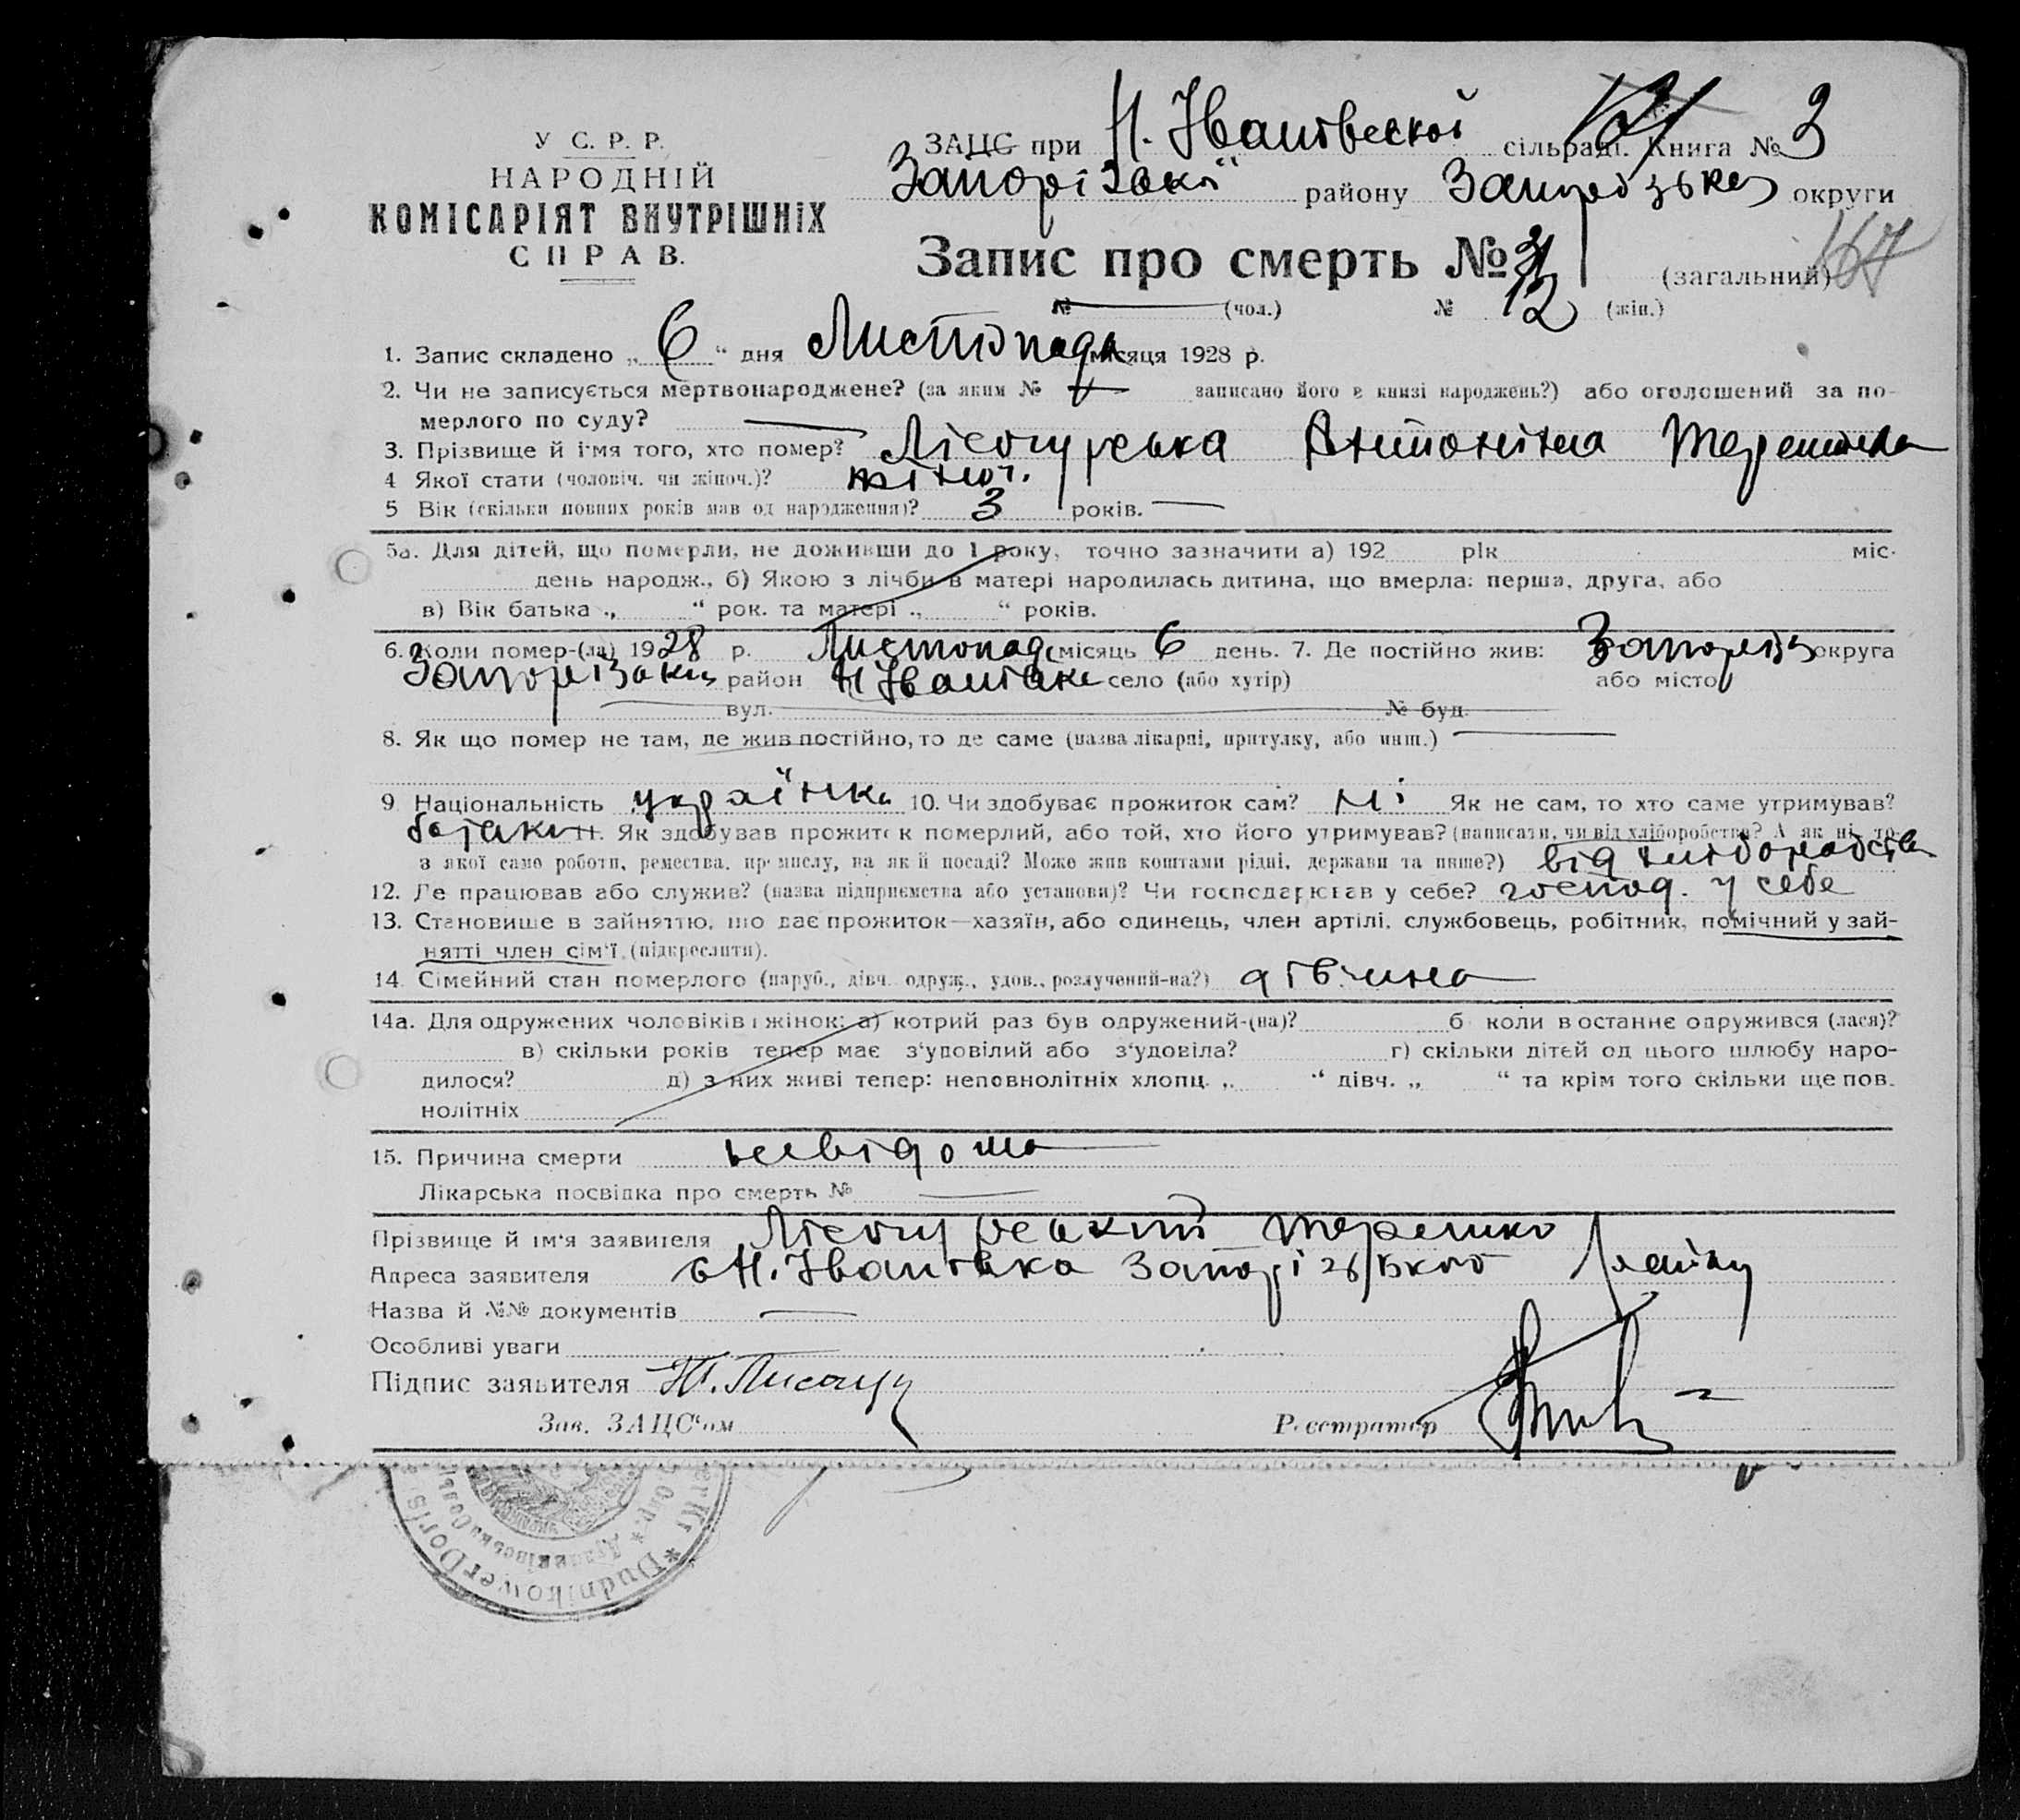 У С. Р. Р.
НАРОДНІЙ
КОМІСАРІЯТ ВНУТРІШНІХ
СПРАВ.
ЗАЦС при Н. Іванівескої сільраді. Книга № 3
Запорізької району Запорізької округи
Запис про смерть № 31 (загальний) 167
№ (чол.) № 12 (жін.)
1. Запис складено „ 6 “ дня Листопада місяця 1928 р.
2. Чи не записується мертвонароджене? (за яким № записано його в книзі народжень?) або оголошений за по-
мерлого по суду?
3. Прізвище й ім'я того, хто помер? Лісогурська Антоніна
4 Якої стати (чоловіч. чи жіноч.)? жіноч.
5 Вік (скільки повних років мав од народження)? 3 років.
5а. Для дітей, що померли, не доживши до 1 року, точно зазначити а) 192 рік міс.
день народж., б) Якою з лічби в матері народилась дитина, що вмерла: перша, друга, або
в) Вік батька „ “ рок. та матері „ “ років.
6. Коли помер-(ла) 1928 р. Листопад місяць 6 день. 7. Де постійно жив: Запоріз округа
Запорізьки район Н Іванівка село (або хутір) або місто
вул. № буд.
8. Як що помер не там, де жив постійно, то де саме (назва лікарні, притулку, або инш.)
9 Національність українка 10. Чи здобуває прожиток сам? ні Як не сам, то хто саме утримував?
батьки 11. Як здобував прожиток померлий, або той, хто його утримував? (написати, чи від хліборобства? А як ні, то
з якої само роботи, ремества, промислу, на якій посаді? Може жив коштами рідні, держави та инше?) від хліборобства
12. Де працював або служив? (назва підприємства або установи)? Чи господарював у себе? господ. у себе
13. Становище в зайняттю, що дає прожиток—хазяїн, або одинець, член артілі, службовець, робітник, помічний у зай-
нятті член сім'ї (підкреслити).
14 Сімейний стан померлого (паруб., дівч. одруж., удов., розлучений-на?) дівчина
14а. Для одружених чоловіків і жінок: а) котрий раз був одружений-(на)? б коли в останнє одружився (лася)?
в) скільки років тепер має з'удовілий або з'удовіла? г) скільки дітей од цього шлюбу наро-
дилося? д) з них живі тепер: неповнолітніх хлопц. „ “ дівч. „ “ та крім того скільки ще пов.
нолітніх
15. Причина смерти невідома
Лікарська посвідка про смерть №
Прізвище й ім'я заявителя Лісогурський Терешко
Адреса заявителя с Н. Іванівка Запорізького району
Назва й №№ документів
Особливі уваги
Підпис заявителя
Зав. ЗАЦС'ом Реєстратор